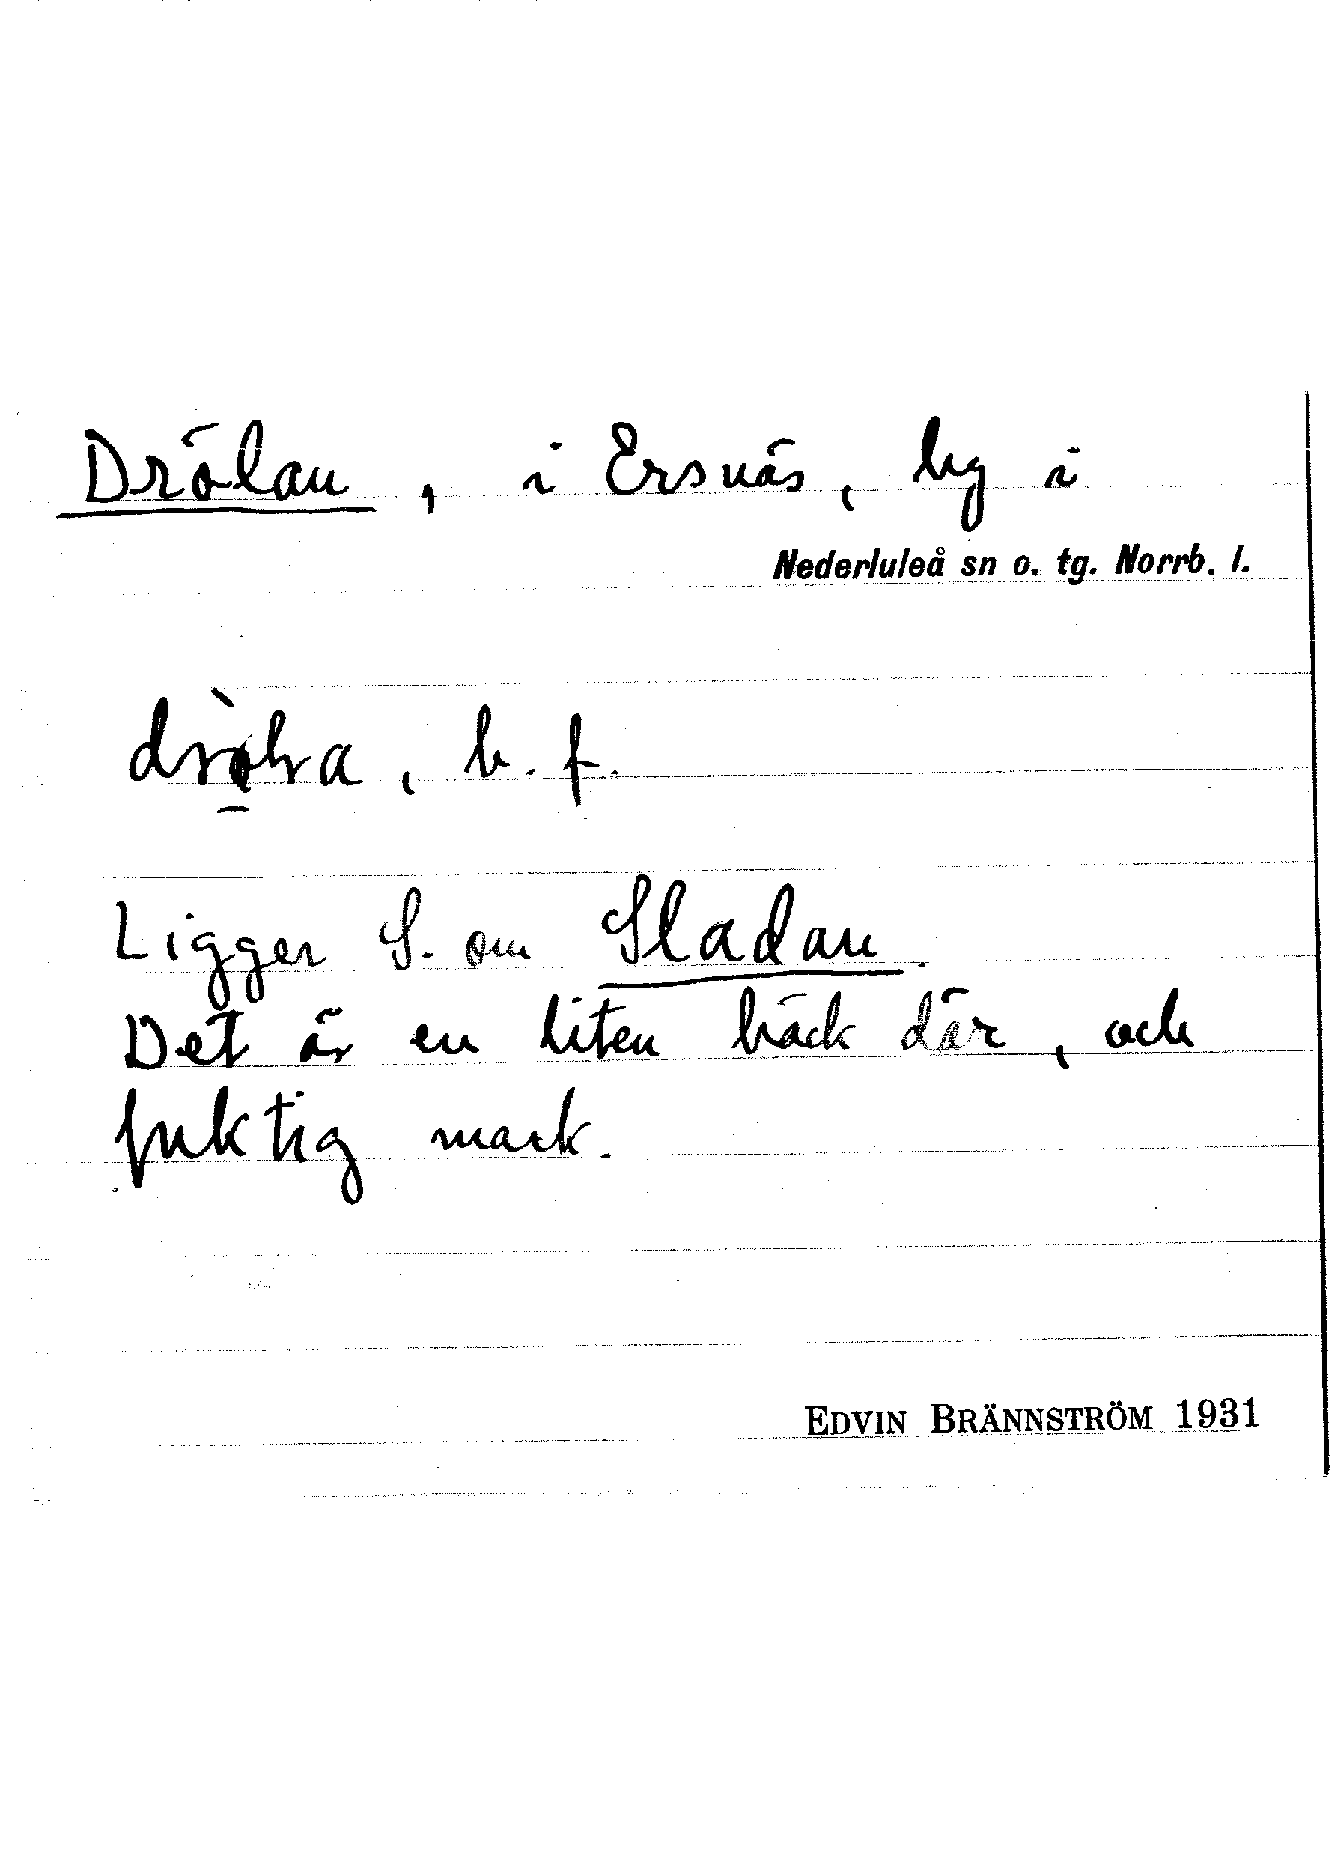 Drölan, i Ersnäs, by i
Nederluleå sn o. tg. Norrb. l.
b. f.
Ligger S. om Sladan.
Det är en liten bäck där, och
fuktig mark.
EDVIN BRÄNNSTRÖM 1931